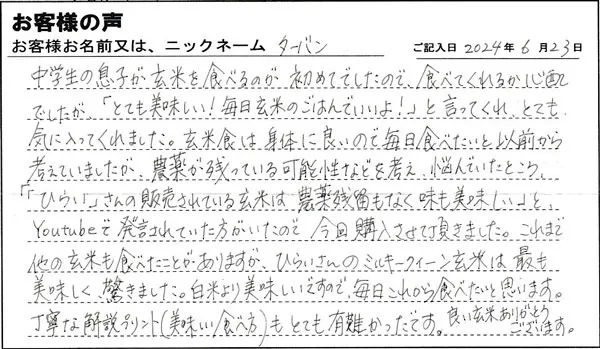 お客様の声
お客様お名前又は、ニックネーム ターバン ご記入日 2024年 6月23日
中学生の息子が玄米を食べるのが初めてでしたので、食べてくれるか心配
でしたが、「とても美味しい!毎日玄米のごはんでいいよ!」と言ってくれ、とても
気に入ってくれました。玄米食は身体に良いので毎日食べたいと以前から
考えていましたが、農薬が残っている可能性などを考え、悩んでいたところ、
「ひらい」さんの販売されている玄米は農薬残留もなく味も美味しい」と
Youtubeで発言されていた方がいたので今回購入させて頂きました。これまで
他の玄米も食べたことがありますが、ひらいさんのミルキークィーン玄米は最も
美味しく、驚きました。白米より美味しいですので、毎日これから食べたいと思います。
丁寧な解説プリント(美味しい食べ方)もとても有難かったです。良い玄米ありがとう
ございます。